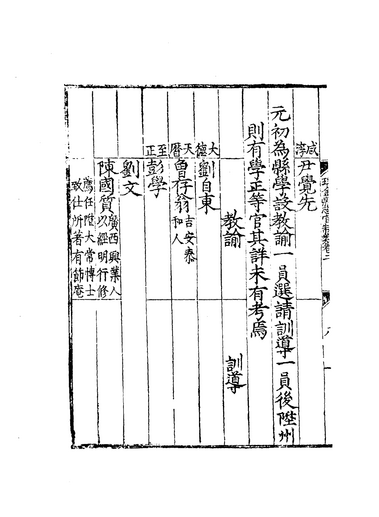 咸淳
尹覺先
元初為縣學設教諭一員選請訓導一員後陞州
則有學正等官其詳未有考焉
教諭
訓導
大德
劉自東
天曆
曾存翁 吉安泰和人
至正
彭學
劉文
陳國質 廣西興業人以經明行修
薦任陞大常博士致仕所著有節菴